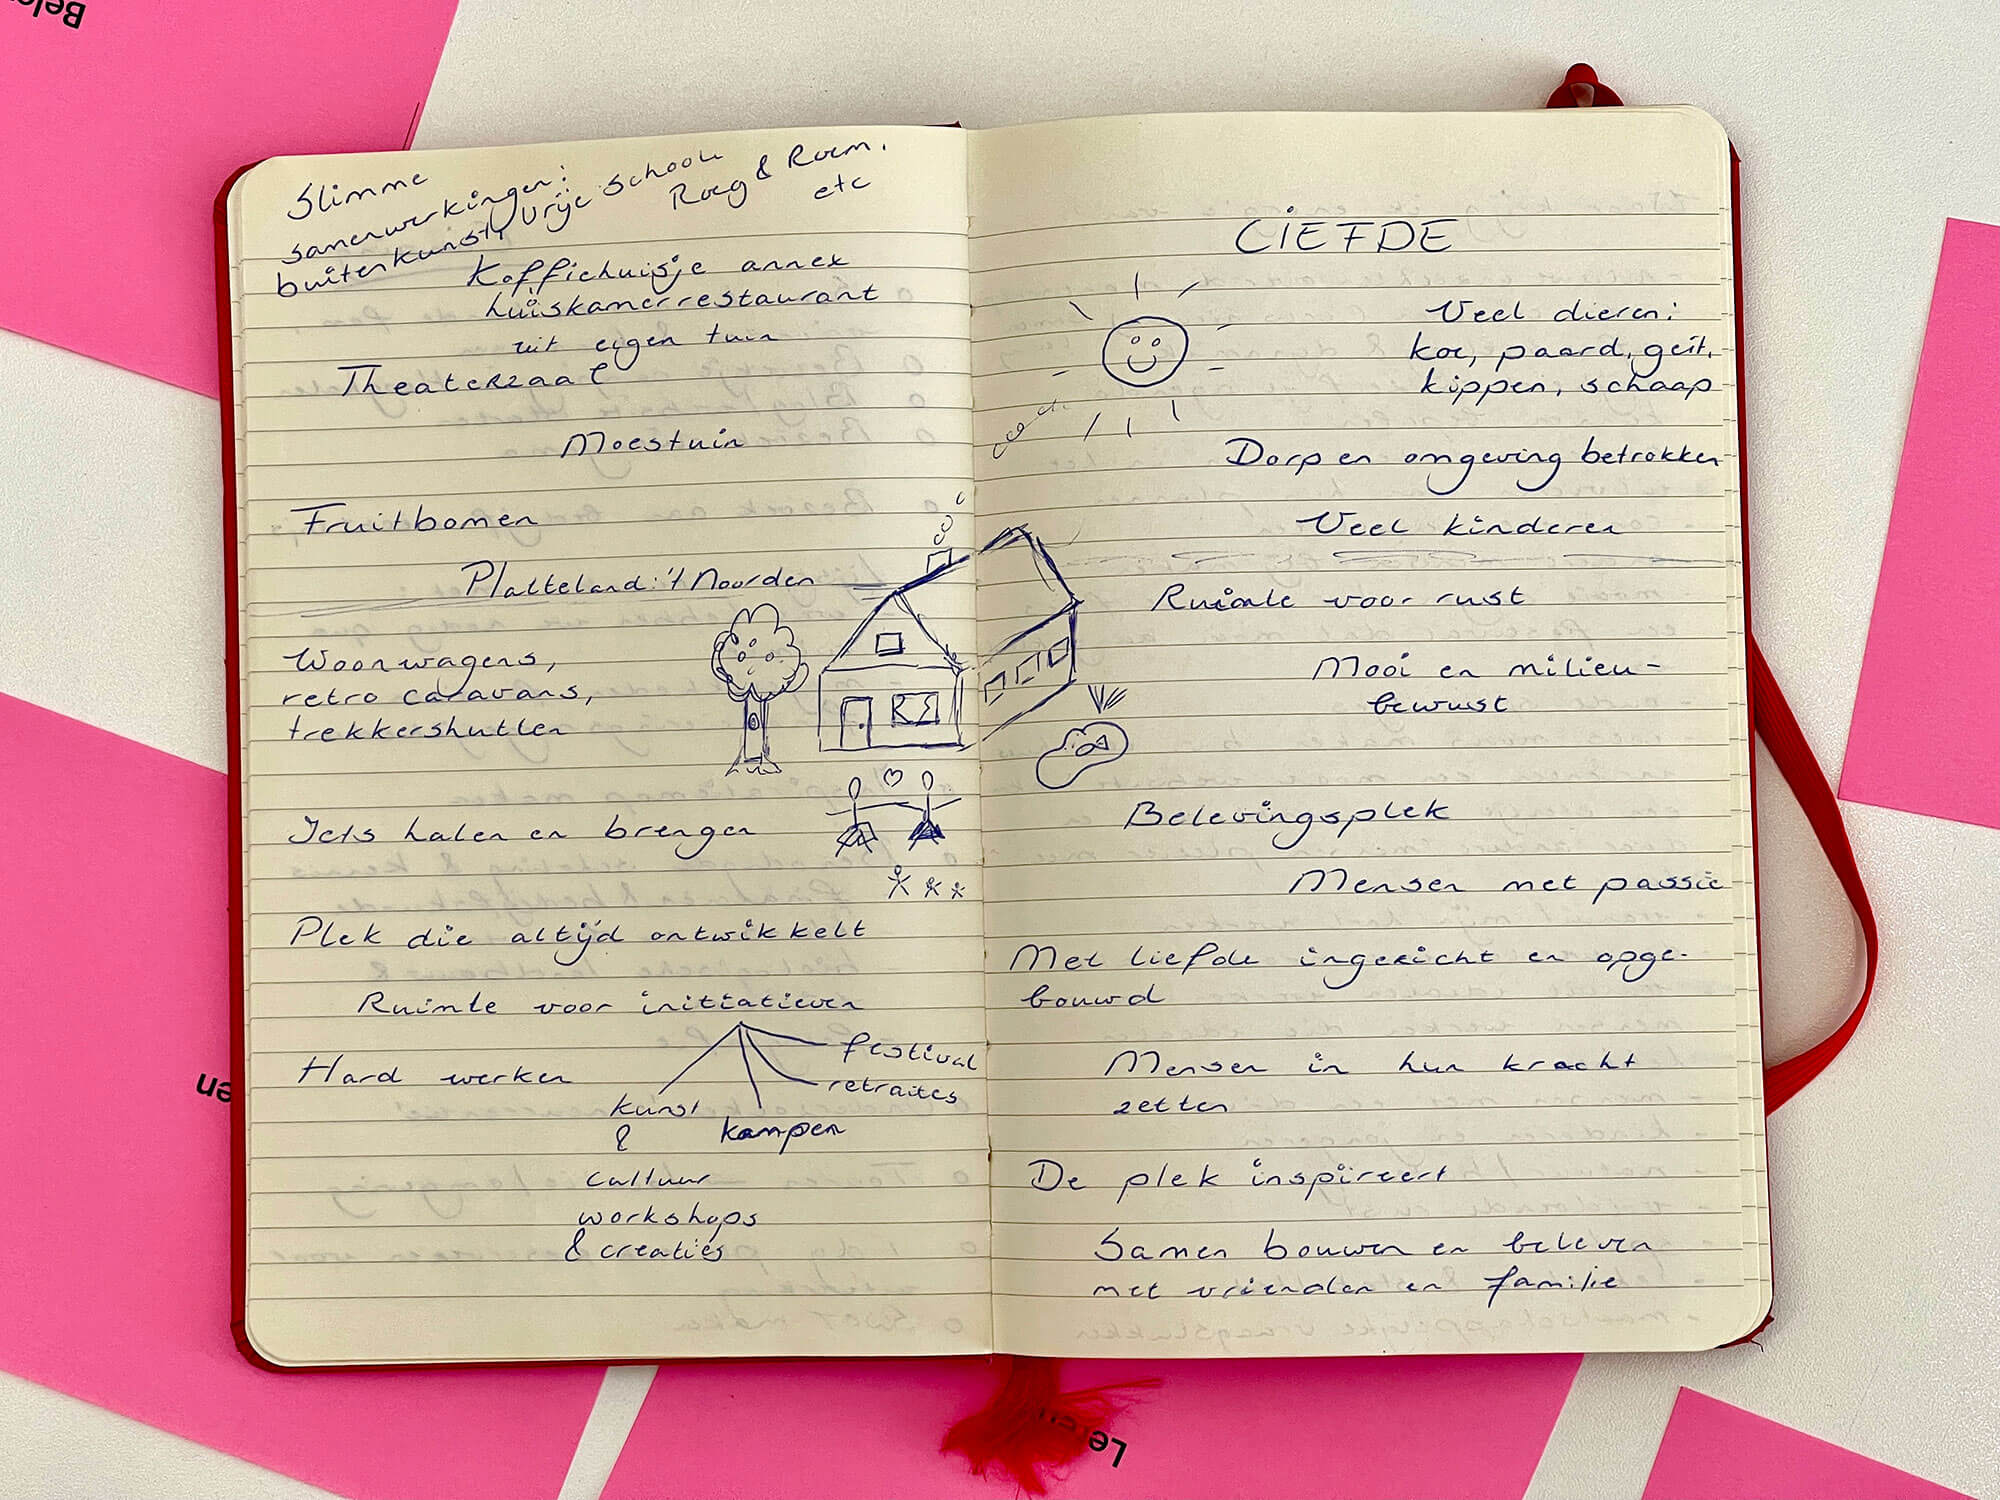 Slimme
samenwerkingen:
buitenkunst, vrije school
Roeg & Roem.
etc
Koffiehuisje annex
huiskamerrestaurant
uit eigen tuin
Theaterzaal
Moestuin
Fruitbomen
Platteland: 't Noorden
Woonwagens,
retro caravans,
trekkershutten
Iets halen en brengen
Plek die altijd ontwikkelt
Ruimte voor initiatieven
Hard werken
festival
retraites
kunst
&
kampen
cultuur
workshops
& creaties
LIEFDE
Veel dieren:
koe, paard, geit,
kippen, schaap
Dorp en omgeving betrokken
Veel kinderen
Ruimte voor rust
Mooi en milieu-
bewust
Belevingsplek
Mensen met passie
Met liefde ingericht en opge-
bouwd
Mensen in hun kracht
zetten
De plek inspireert
Samen bouwen en beleven
met vrienden en familie
Leren